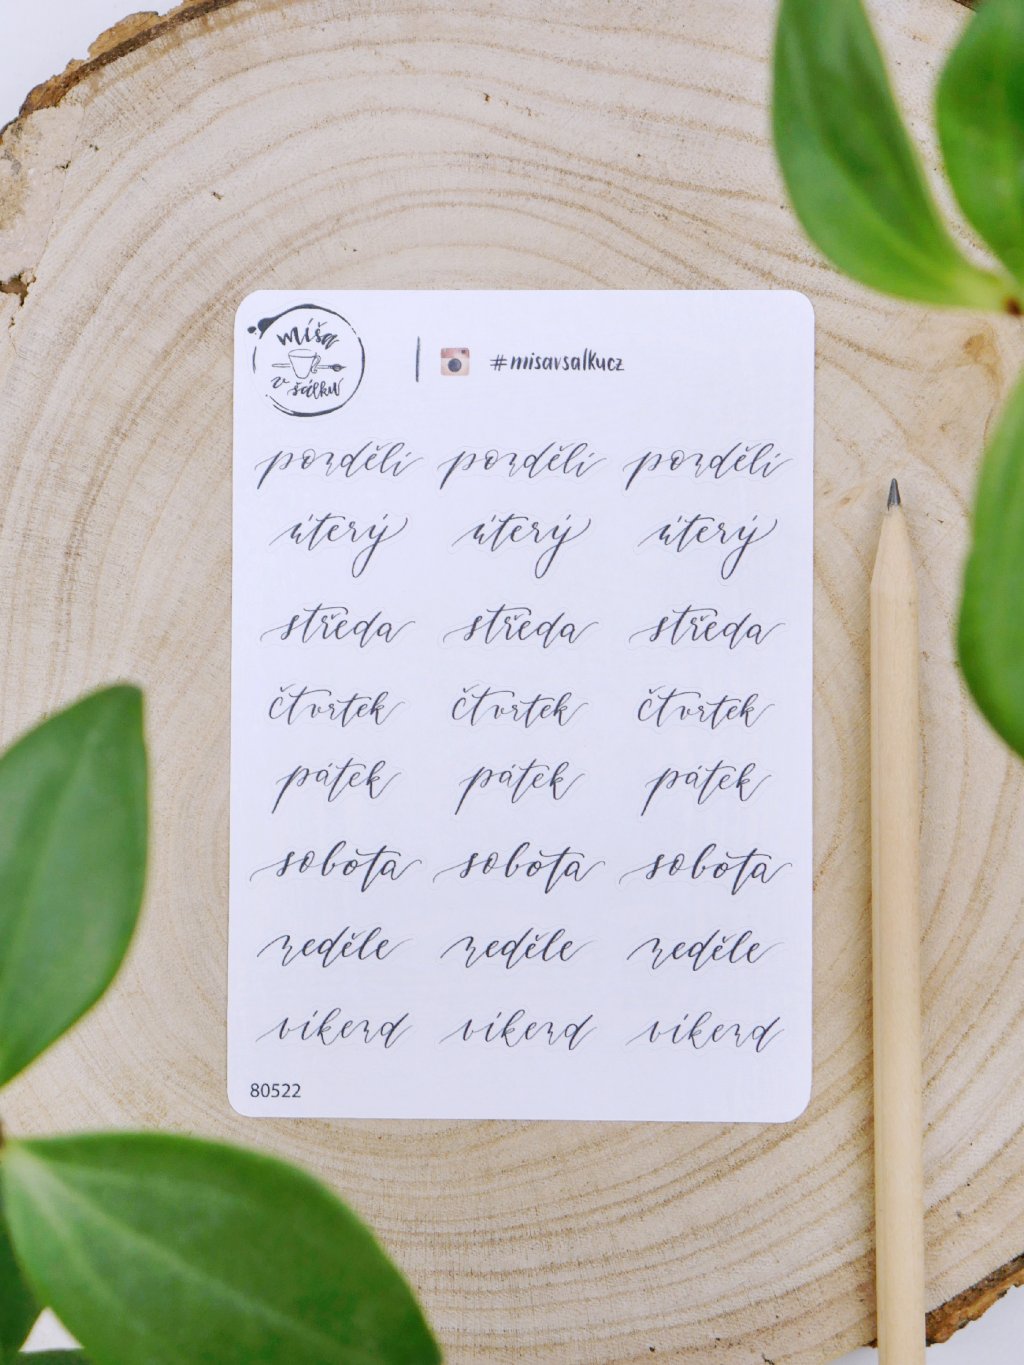 míša
v šálku
#misavsalkucz
pondělí pondělí pondělí
úterý úterý úterý
středa středa středa
čtvrtek čtvrtek čtvrtek
pátek pátek pátek
sobota sobota sobota
neděle neděle neděle
víkend víkend víkend
80522